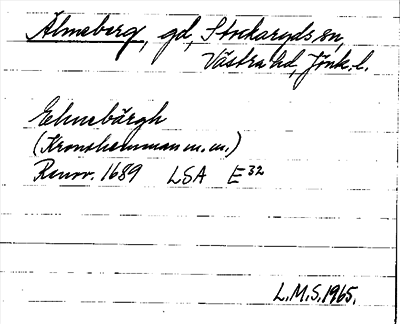 Älmeberg, gd, Stockaryds sn,
Västra hd, Jönk. l.
Elmebärgh
(Kronohemman m.m.)
Renov. 1689 LSA E 32
L.M.S. 1965.